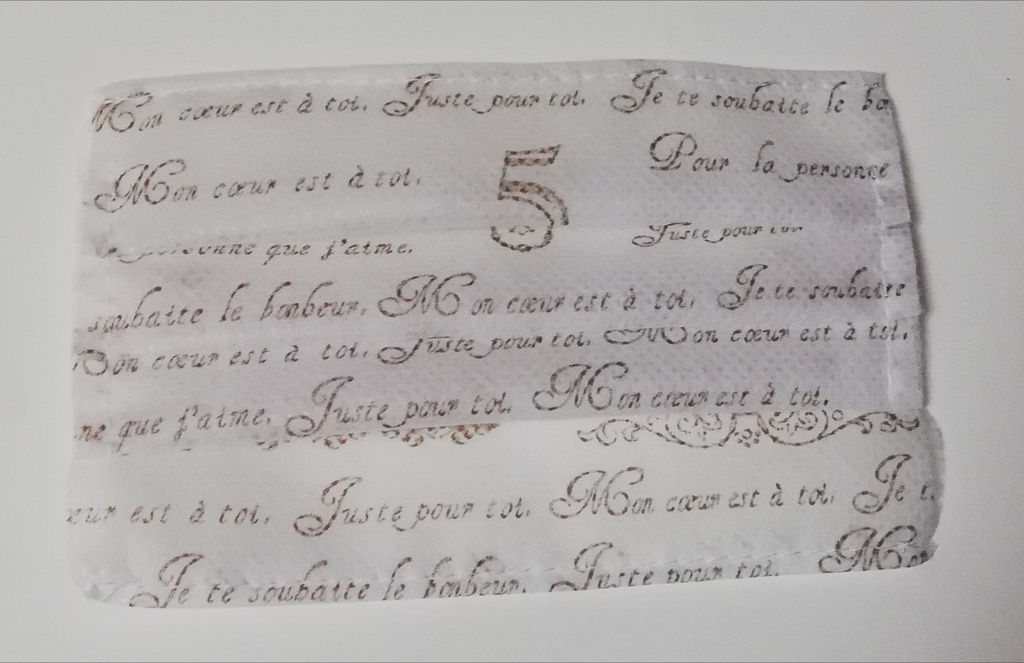 Mon cœur est à toi. Juste pour toi. Je te souhaite le bo
Mon cœur est à toi. 5 Pour la personne
personne que j'aime. Juste pour toi
souhaite le bonheur. Mon cœur est à toi. Je te souhaite
Mon cœur est à toi. Juste pour toi. Mon cœur est à toi.
ne que j'aime. Juste pour toi. Mon cœur est à toi.
œur est à toi. Juste pour toi. Mon cœur est à toi. Je t
Je te souhaite le bonheur. Juste pour toi. Mon